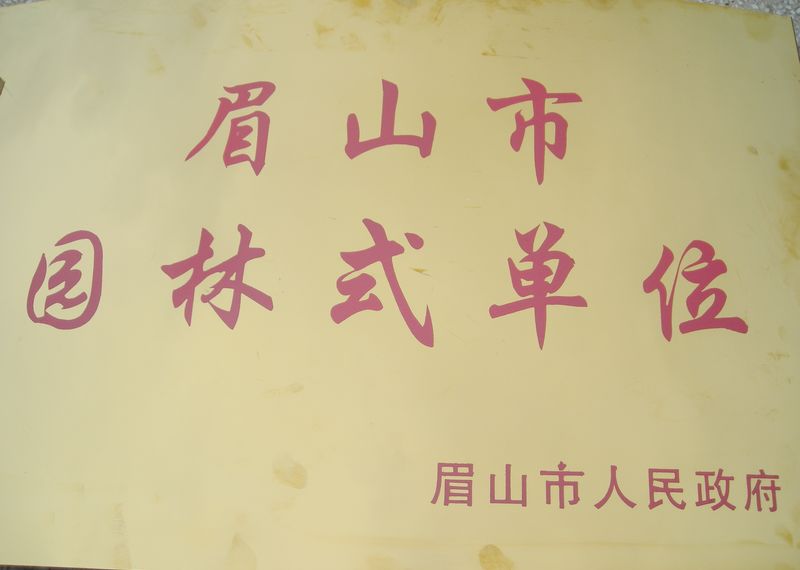 眉山市
园林式单位
眉山市人民政府